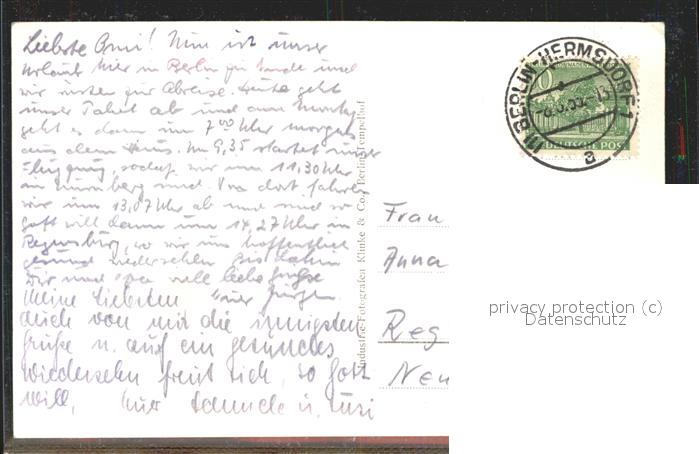 Liebste Omi! Nun ist unser
Urlaub hier in Berlin zu Ende und
wir rüsten zur Abreise. Heute geht
unser Paket ab und am Montag
geht es dann um 7⁰⁰ Uhr morgens
aus dem Haus. Um 9,35 startet unser
Flugzeug, sodaß wir um 11,30 Uhr
in Nürnberg sind. Von dort fahren
wir um 13,07 Uhr ab und sind so
Gott will dann um 14,27 Uhr in
Regensburg, wo wir uns hoffentlich
gesund wiedersehen. Bis dahin
Dir und Opa viele liebe Grüße
Euer Jürgen
Meine Liebsten
Auch von mir die innigsten
Grüße u. auf ein gesundes
Wiedersehn freut sich, so Gott
will, Eure u. Susi
Industrie-Fotografen Klinke & Co., Berlin-Tempelhof
BERLIN-HERMSDORF 1
a
DEUTSCHE POST
Frau
Anna
Reg
Neu
privacy protection (c)
Datenschutz